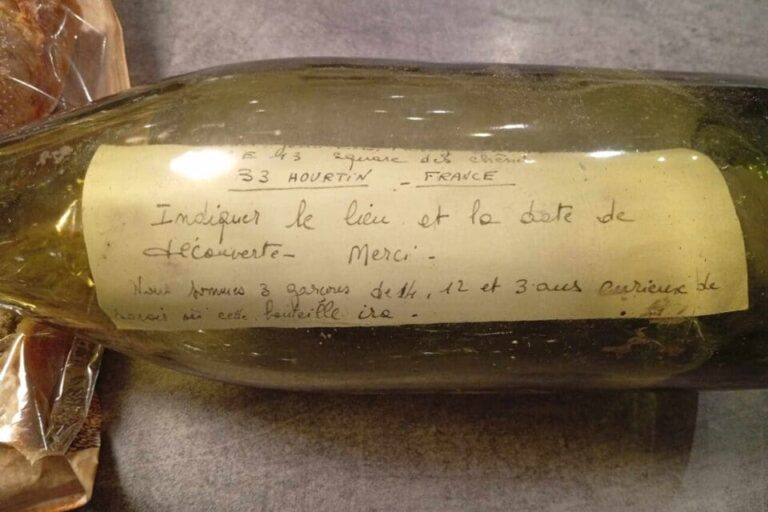 E 43 square des chênes
33 HOURTIN - FRANCE
Indiquer le lieu et la date de
découverte - Merci -
Nous sommes 3 garçons de 14, 12 et 3 ans curieux de
savoir où cette bouteille ira .